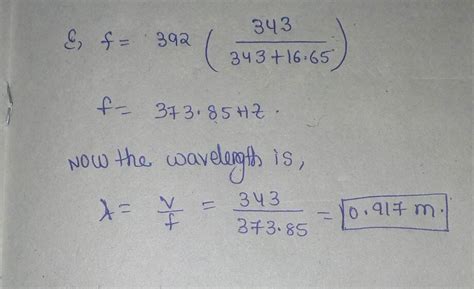 &, f = 392 ( 343 / 343+16.65 )
f = 373.85 HZ.
NOW the wavelength is,
λ = v/f = 343/373.85 = 0.917 m.